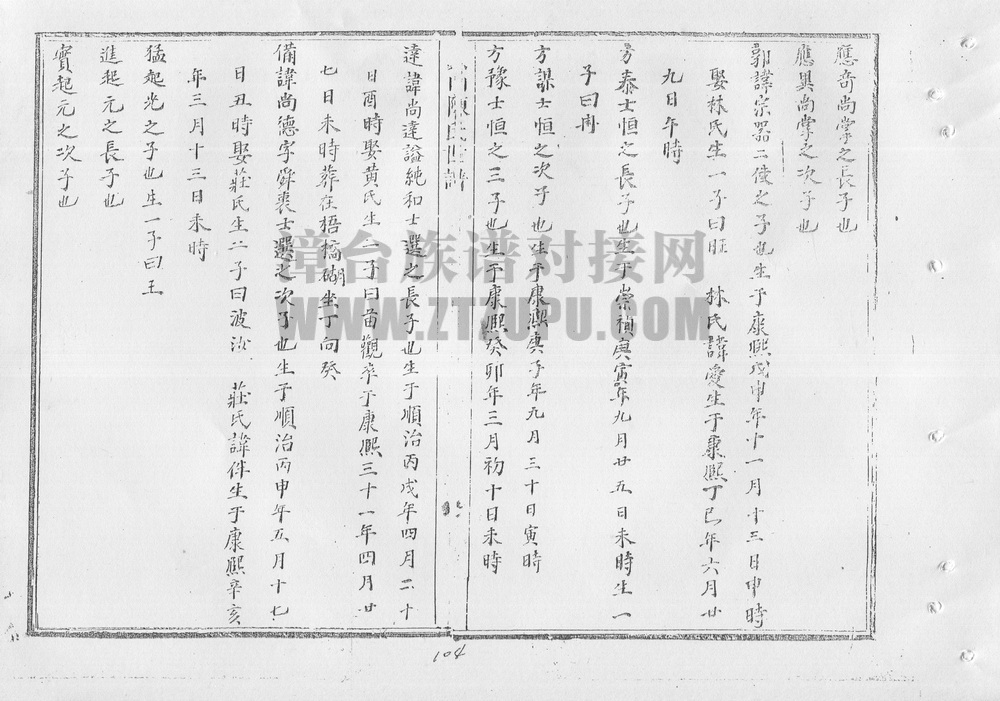 應奇尚掌之長子也
應興尚掌之次子也
郭諱宗器二俊之子也生于康熙戊申年十一月十三日申時
娶林氏生一子曰旺 林氏諱愛生于康熙丁巳年六月廿
九日午時
方泰士恒之長子也生于崇禎庚寅年九月廿五日未時生一
子曰冉
方謀士恒之次子也生于康熙庚子年九月三十日寅時
方豫士恒之三子也生于康熙癸卯年三月初十日未時
陳氏世譜
達諱尚達諡純和士選之長子也生于順治丙戌年四月二十
日酉時娶黄氏生二子曰苗觀卒于康熙三十一年四月廿
七日未時葬在梧橋湖坐丁向癸
備諱尚德字舜裏士選之次子也生于順治丙申年五月十七
日丑時娶莊氏生二子曰波汝 莊氏諱伴生于康熙辛亥
年三月十三日未時
猛起光之子也生一子曰王
進起元之長子也
賓起元之次子也
104
章台族谱对接网
WWW.ZTZUPU.COM